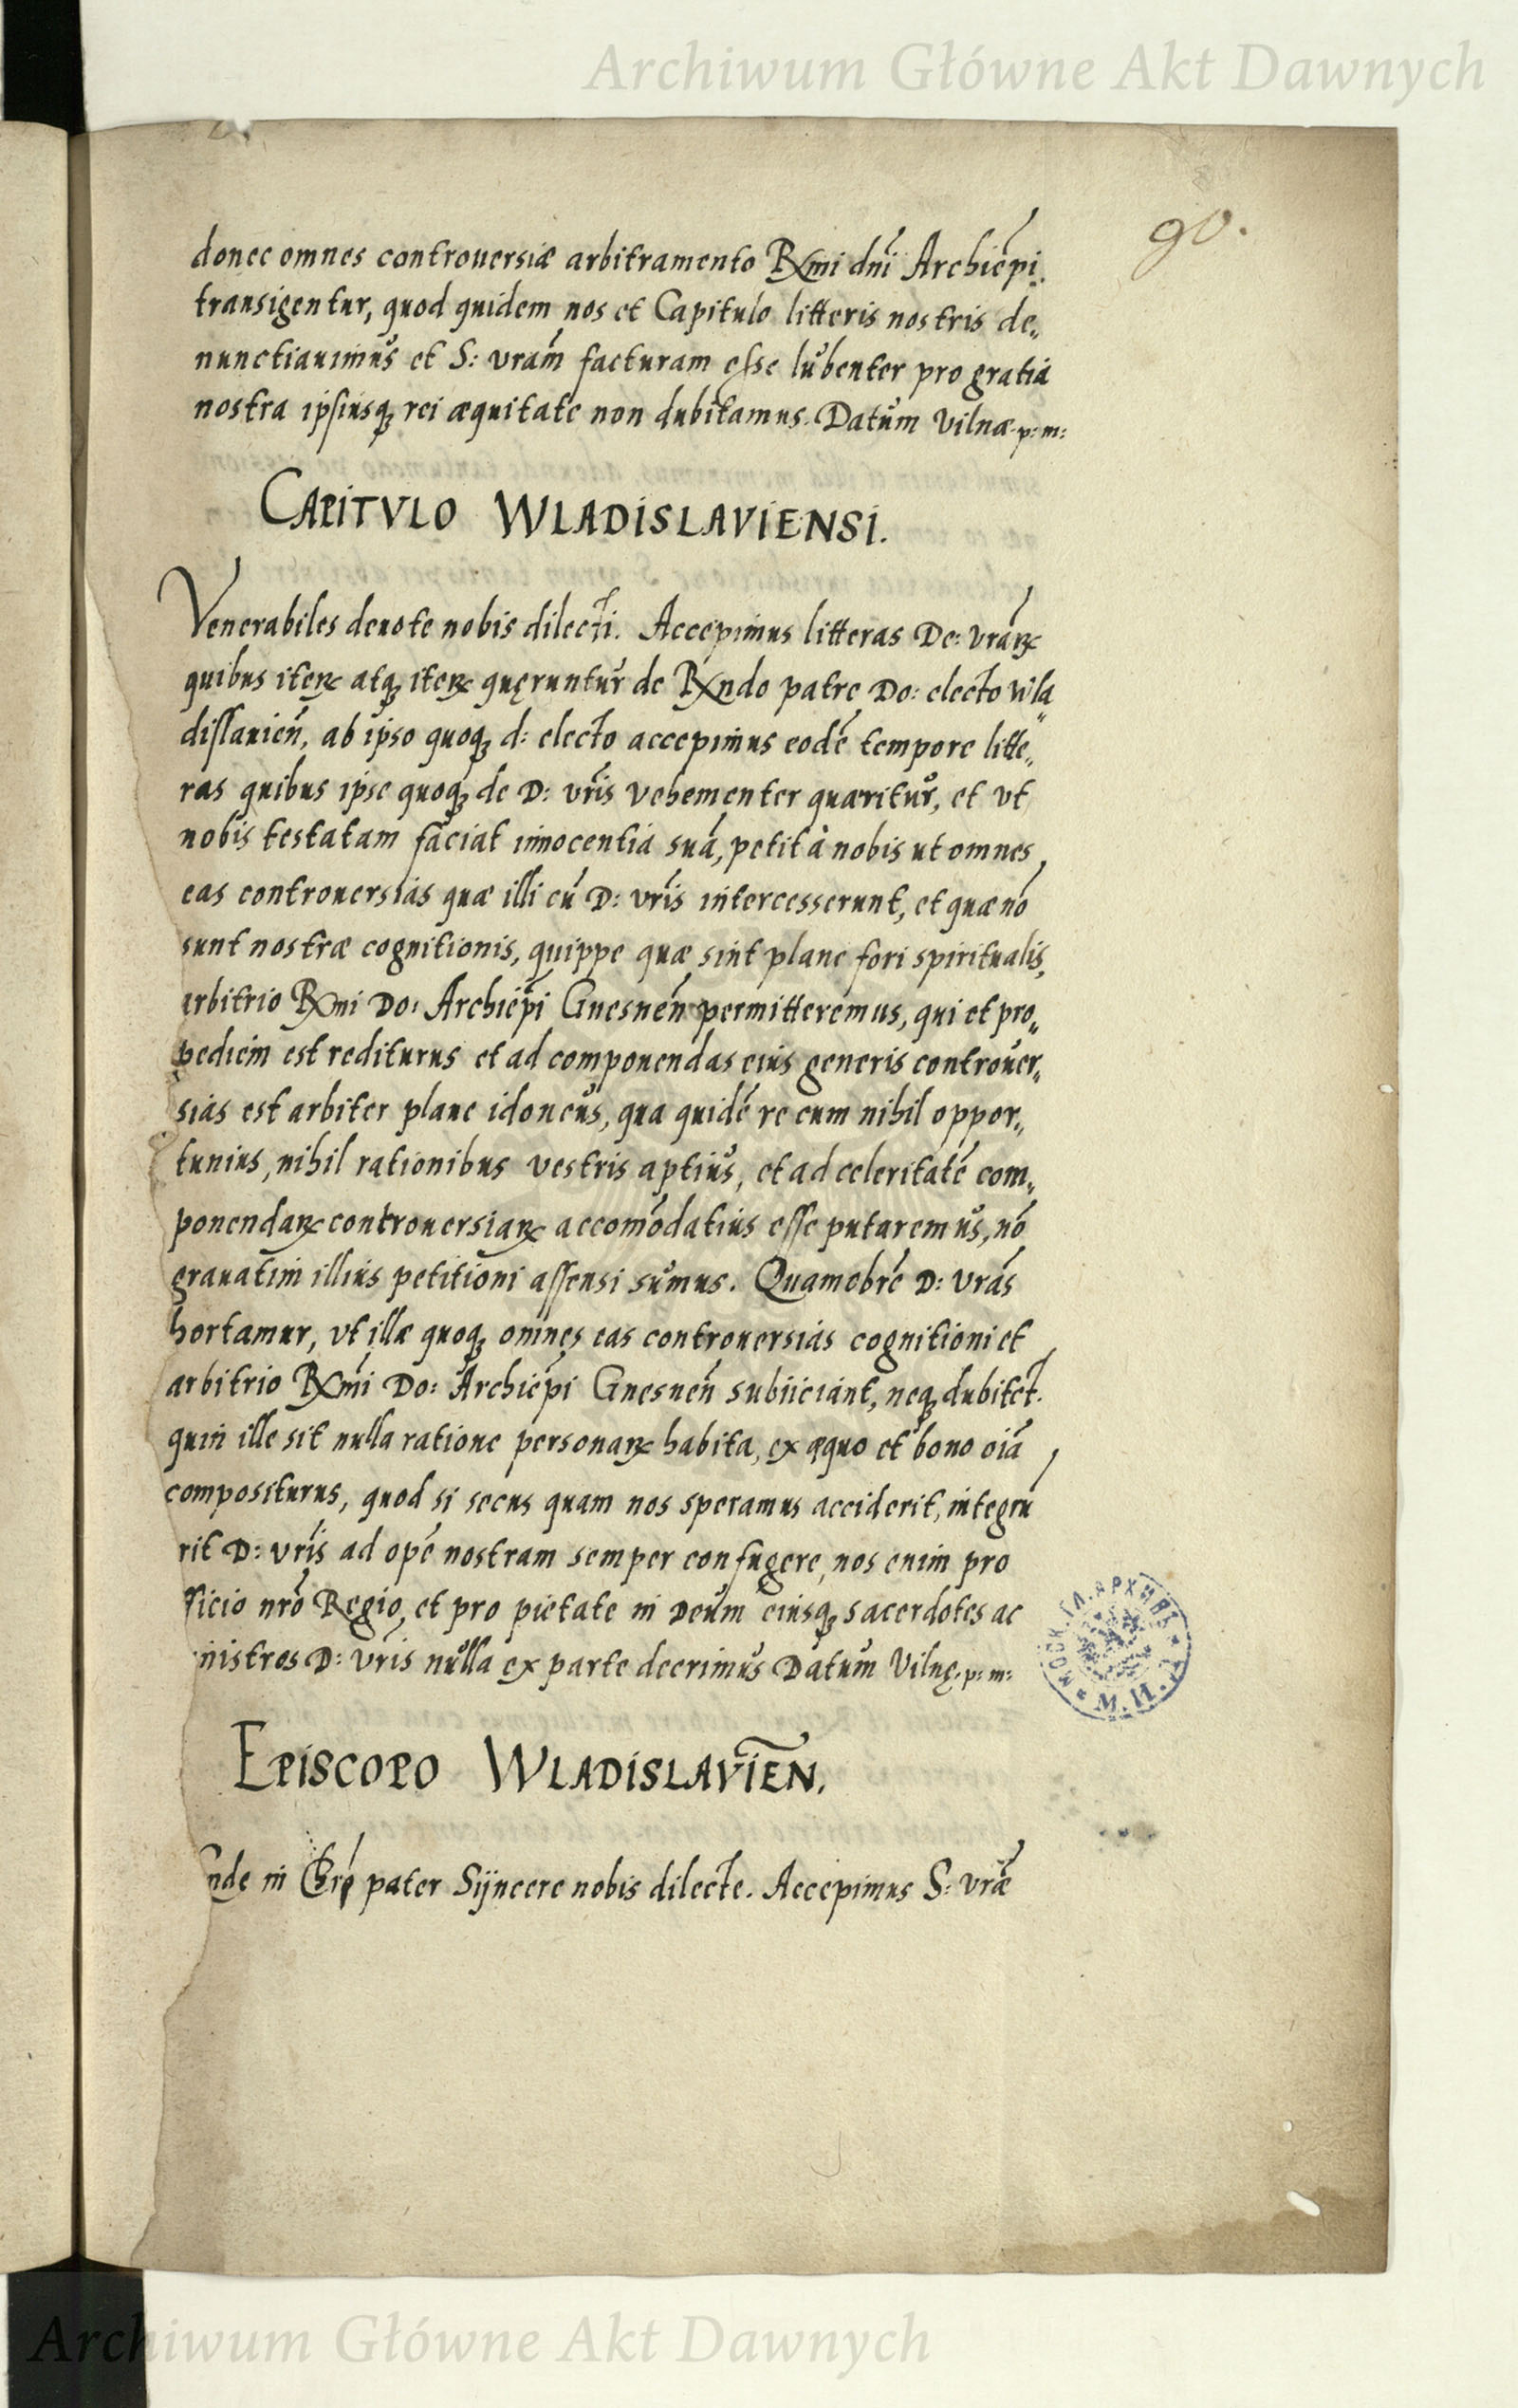 Archiwum Główne Akt Dawnych
90.
donec omnes controuersiæ arbitramento Rx̄mi dn̄i Archiēpi.
transigentur, quod quidem nos et Capitulo litteris nostris de„
nunctiauimus et S: vr̄am facturam esse lubenter pro gratia
nostra ipsiusqꝫ rei æquitate non dubitamus. Datum Vilnæ. p: m:
CAPITVLO WLADISLAVIENSI.
Venerabiles deuote nobis dilecti. Accepimus litteras De: vr̄aꝝ
quibus iteꝝ atqꝫ iteꝝ quęruntur de Rx̄ndo patre Do: electo Wla„
dislauien̄, ab ipso quoqꝫ d: electo accepimus eodē tempore litte„
ras quibus ipse quoqꝫ de D: vr̄is vehementer quæritur, et vt
nobis testatam faciat innocentiā suā, petit à nobis ut omnes
eas controuersias quæ illi cū D: vr̄is intercesserunt, et quæ nō
sunt nostræ cognitionis, quippe quæ sint plane fori spiritualis,
arbitrio Rx̄mi Do: Archiēpi Gnesnen̄ permitteremus, qui et pro„
pediem est rediturus et ad componendas eius generis controuer„
sias est arbiter plane idoneus, qua quidē re cum nihil oppor„
tunius, nihil rationibus vestris aptius, et ad celeritatē com„
ponendaꝝ controuersiaꝝ accomōdatius esse putaremus, nō
grauatim illius petitioni assensi sumus. Quamobrē D: vr̄as
hortamur, vt illæ quoqꝫ omnes eas controuersias cognitioni et
arbitrio Rx̄mi Do: Archiēpi Gnesnen̄ subiiciant, neqꝫ dubitēt.
quin ille sit nulla ratione personaꝝ habita, ex æquo et bono oīa
compositurus, quod si secus quam nos speramus acciderit, integrū
rit D: vr̄is ad opē nostram semper confugere, nos enim pro
ficio nr̄o Regio, et pro pietate in Deum eiusqꝫ sacerdotes ac
nistros D: vr̄is nulla ex parte deerimus Datum Vilnę. p: m:
EPISCOPO WLADISLAVIEN̄.
nde in Chr̄o pater Sijncere nobis dilecte. Accepimus S: vr̄æ
МОСК. ГЛ. АРХИВЪ М. И. Д.
Archiwum Główne Akt Dawnych